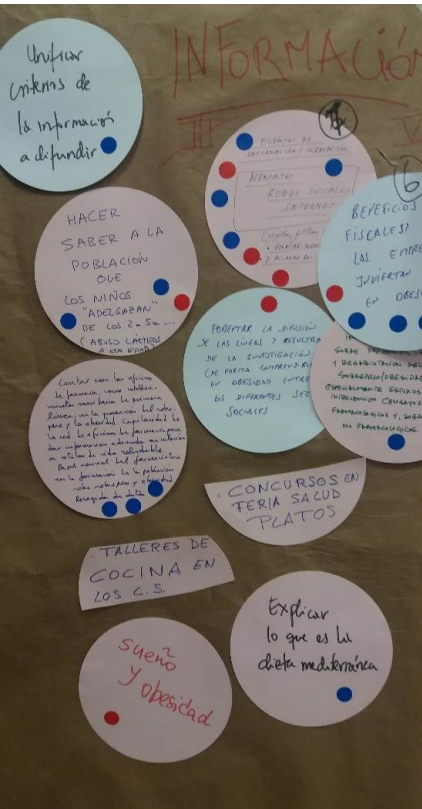 INFORMACIÓN
III
V
Unificar
criterios de
la información
a difundir
FUENTES DE
INFORMACIÓN/FORMACIÓN
MENSAJES
REDES SOCIALES
INTERNET
6
BENEFICIOS
FISCALES
LAS EMPRE
INVIERTAN
EN OBES
HACER
SABER A LA
POBLACIÓN
QUE
LOS NIÑOS
"ADELGAZAN"
DE LOS 2 a 5 a...
(ABUSO LÁCTEOS
A ESA EDAD)
FOMENTAR LA DIFUSIÓN
DE LAS LÍNEAS Y RESULTA
DE LA INVESTIGACIÓN
(DE FORMA COMPRENSIBLE
EN OBESIDAD ENTRE
LOS DIFERENTES SEC
SOCIALES
SOBRE
Y REHABILITACIÓN DEL
SOBREPESO/OBESIDAD
FARMACOLÓGICOS Y, SOBR
NO FARMACOLÓGICOS
Contar con las oficinas
de farmacia como
línea en la prevención del sobre
peso y la obesidad. Capacidad de
la red de oficinas de farmacia para
dar información adecuada en relación
a estilos de vida saludable
Papel del farmacéutico
en la formación de la población
sobre sobrepeso y obesidad
Recogida de datos
- CONCURSOS EN
FERIA SALUD
PLATOS
- TALLERES DE
COCINA EN
LOS C.S.
sueño
y obesidad
Explicar
lo que es la
dieta mediterránea